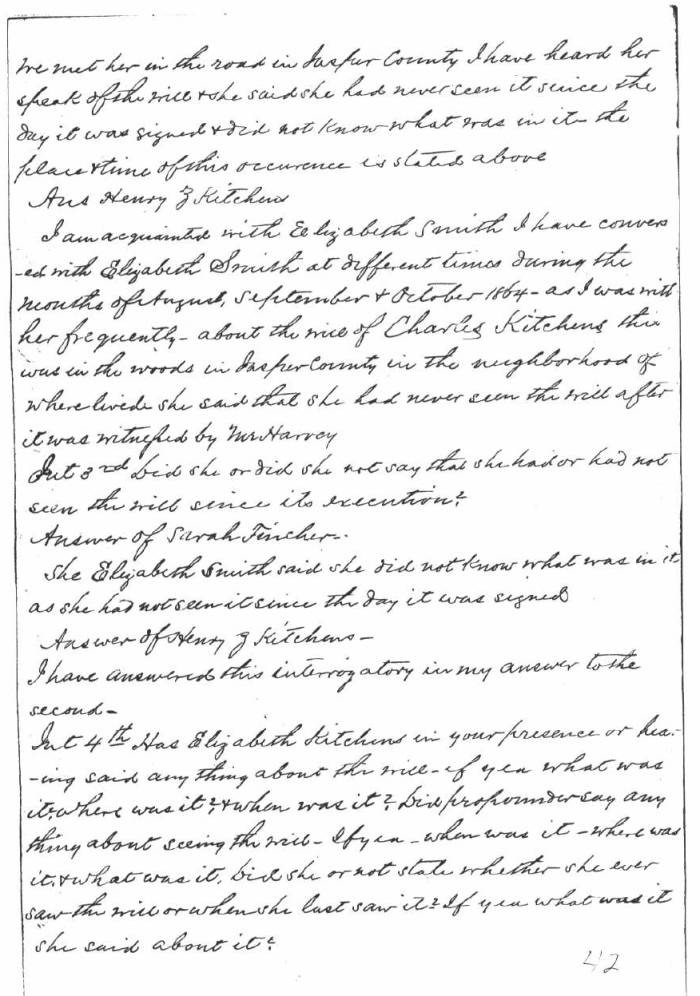 we met her in the road in Jasper County I have heard her
speak of the will & she said she had never seen it since the
day it was signed & did not know what was in it - the
place & time of this occurence is stated above
Ans Henry Z Kitchens
I am acquainted with Elizabeth Smith I have convers
-ed with Elizabeth Smith at different times during the
months of August, September & October 1864 - as I was with
her frequently - about the will of Charles Kitchens this
was in the woods in Jasper County in the neighborhood of
where lived she said that she had never seen the will after
it was witnessed by Mr Harvey
Int 3rd Did she or did she not say that she had or had not
seen the will since its execution?
Answer of Sarah Fincher -
She Elizabeth Smith said she did not know what was in it
as she had not seen it since the day it was signed
Answer of Henry Z Kitchens -
I have answered this interrogatory in my answer to the
second -
Int 4th Has Elizabeth Kitchens in your presence or hea-
-ing said any thing about the will - if yea what was
it, where was it? & when was it? Did propounder say any
thing about seeing the will - If yea - when was it - where was
it, & what was it, Did she or not state whether she ever
saw the will or when she last saw it? If yea what was it
she said about it?
42